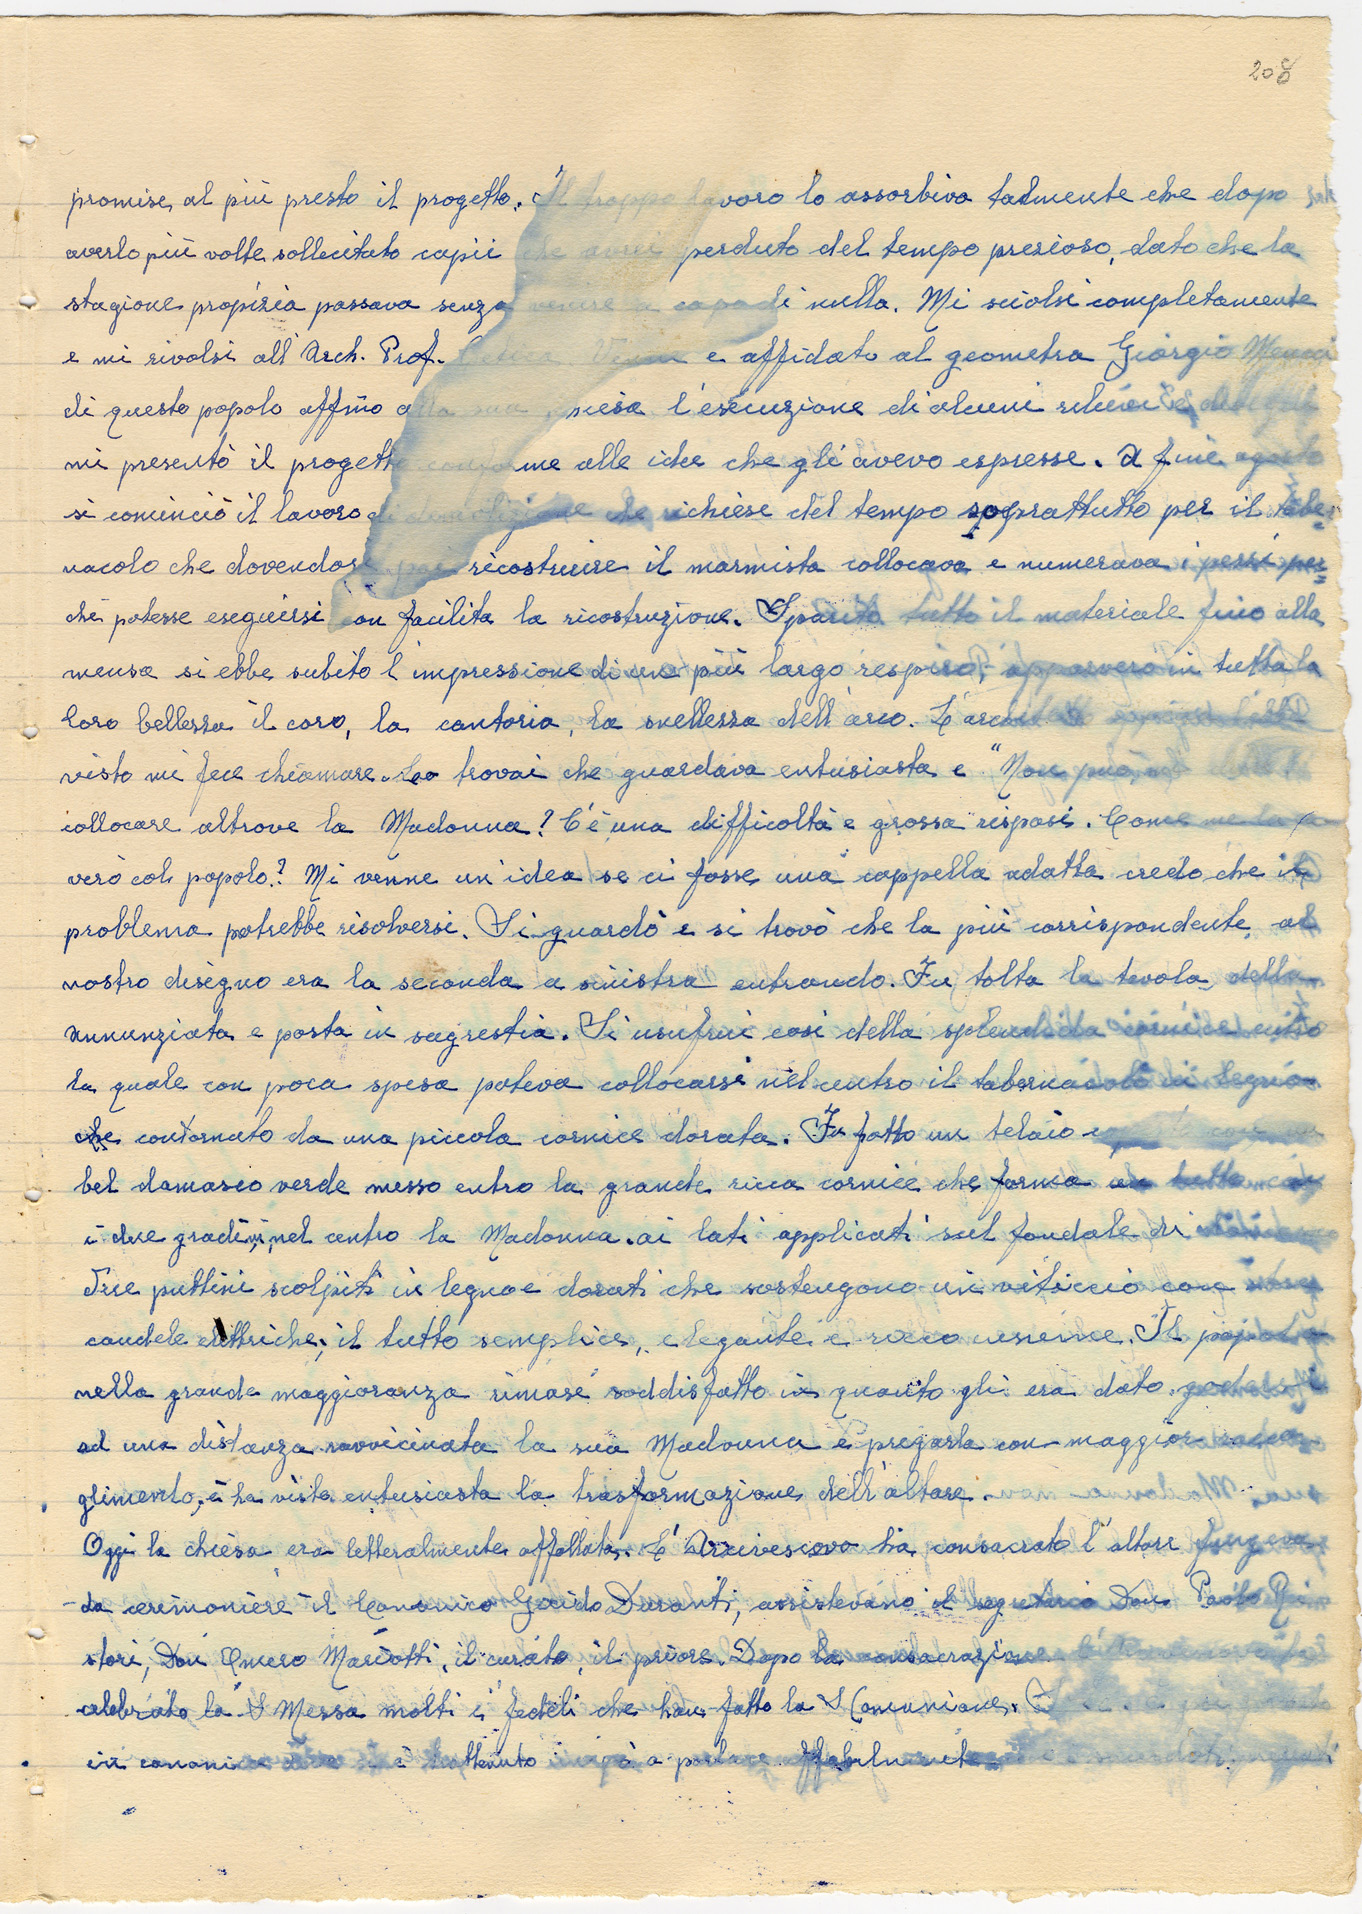 208
promise, al più presto il progetto. Il troppo lavoro lo assorbiva talmente che dopo
averlo più volte sollecitato capii che avrei perduto del tempo prezioso, dato che la
stagione propizia passava senza venire a capo di nulla. Mi sciolsi completamente
e mi rivolsi all'Arch. Prof. e affidato al geometra Giorgio
di questo popolo affino alla sua l'esecuzione di alcuni rilievi
mi presentò il progetto conforme alle idee che gli avevo espresse. A fine agosto
si cominciò il lavoro di demolizione che richiese del tempo soprattutto per il tabe-
nacolo che dovendosi poi ricostruire il marmista collocava e numerava i pezzi per-
chè potesse eseguirsi con facilita la ricostruzione. Sparito tutto il materiale fino alla
mensa si ebbe subito l'impressione di un più largo respiro, apparvero in tutta la
loro bellezza il coro, la cantoria, la snellezza dell'arco. L'architetto
visto mi fece chiamare. Lo trovai che guardava entusiasta e "Non può
collocare altrove la Madonna? C'é una difficoltà e grossa risposi. Come
verò col popolo? Mi venne un'idea se ci fosse una cappella adatta credo che il
problema potrebbe risolversi. Si guardò e si trovò che la più corrispondente al
nostro disegno era la seconda a sinistra entrando. Fu tolta la tavola della
annunziata e posta in sagrestia. Si usufruì così della splendida cornice entro
la quale con poca spesa poteva collocarsi nel centro il tabernacolo in legno
che contornato da una piccola cornice dorata. Fu fatto un telaio con un
bel damasco verde messo entro la grande ricca cornice che forma un tutto con
i due gradini, nel centro la Madonna. ai lati applicati sul fondale di
due puttini scolpiti in legno e dorati che sostengono un viticcio con
candele elettriche; il tutto semplice, elegante e ricco insieme. Il popolo
nella grande maggioranza rimase soddisfatto in quanto gli era dato godersi
ad una distanza ravvicinata la sua Madonna e pregarla con maggior racco-
glimento, e ha visto entusiasta la trasformazione dell'altare.
Oggi la chiesa era letteralmente affollata. L'Arcivescovo ha consacrato l'altare fungeva
da cerimoniere il Canonico Guido Duranti, assistevano il segretario Don Paolo Ri
stori, Don Omero Mariotti, il curato, il priore. Dopo la consacrazione
celebrato la S Messa molti i fedeli che han fatto la S Comunione.
in canonica dove si è trattenuto a parlare affabilmente